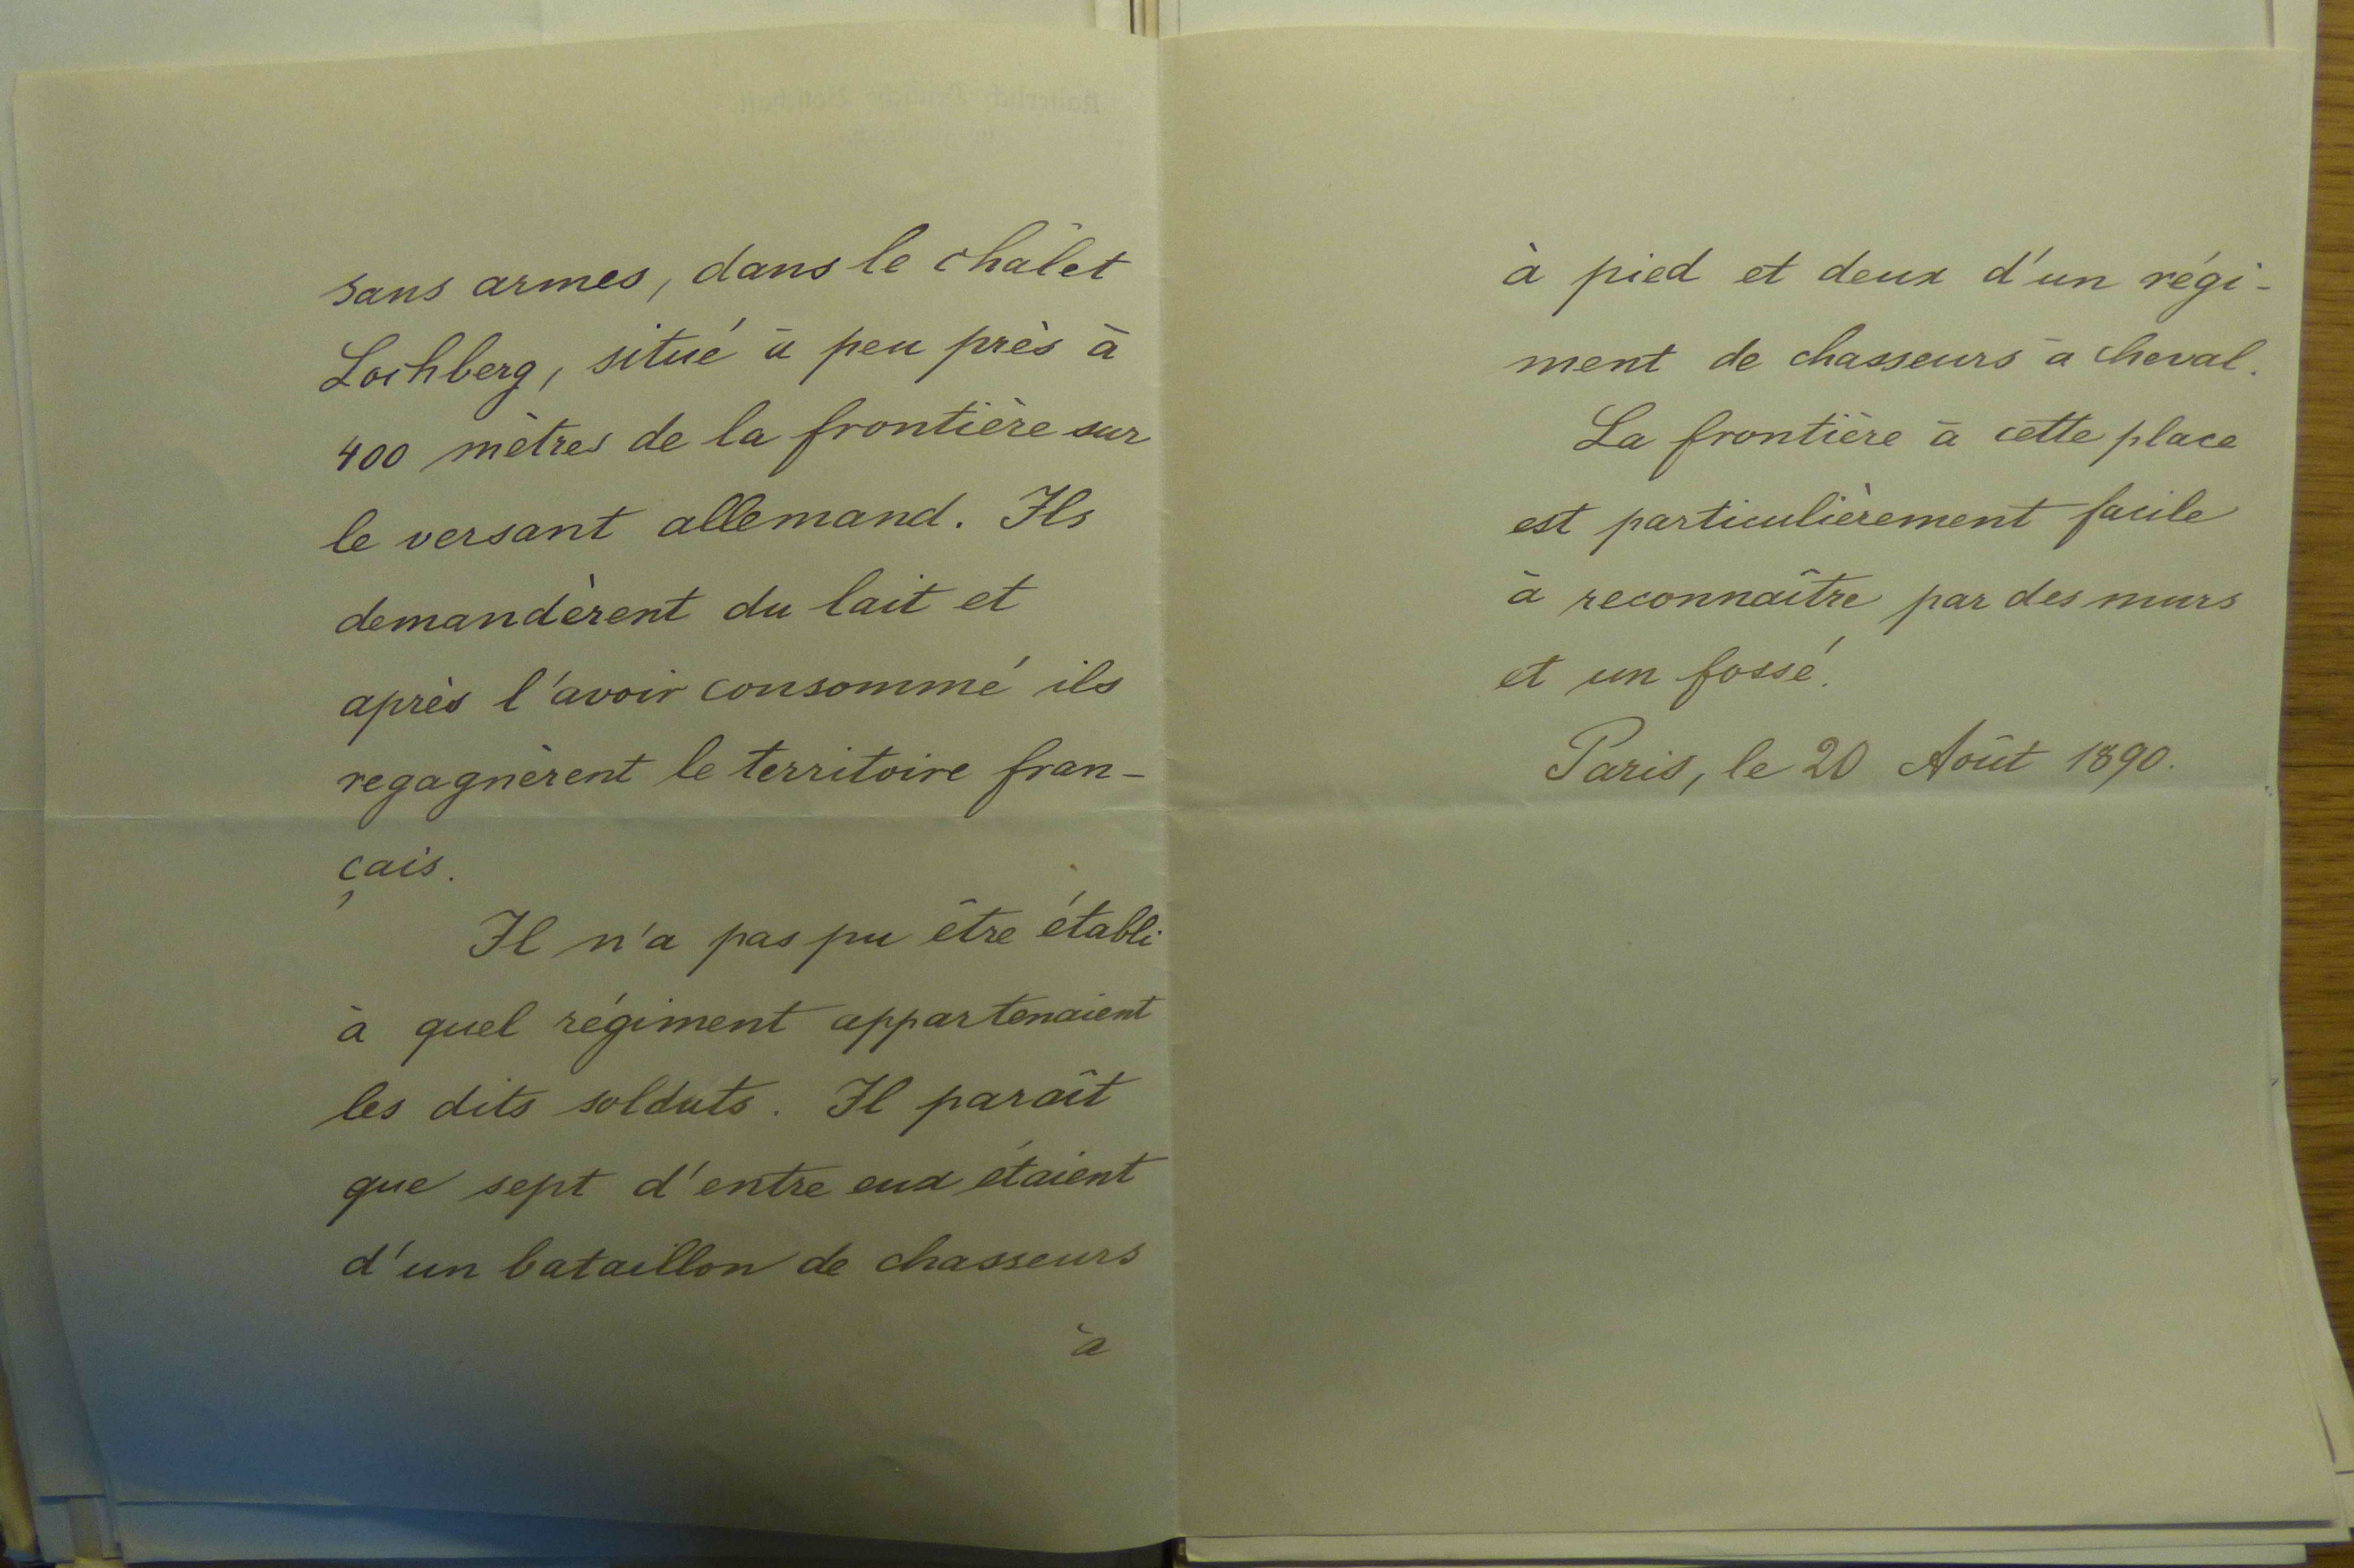 sans armes, dans le châlet
Lochberg, situé à peu près à
400 mètres de la frontière sur
le versant allemand. Ils
demandèrent du lait et
après l'avoir consommé ils
regagnèrent le territoire fran-
çais.
Il n'a pas pu être établi
à quel régiment appartenaient
les dits soldats. Il paraît
que sept d'entre eux étaient
d'un bataillon de chasseurs
à
à pied et deux d'un régi-
ment de chasseurs à cheval.
La frontière à cette place
est particulièrement facile
à reconnaître par des murs
et un fossé.
Paris, le 20 Août 1890.